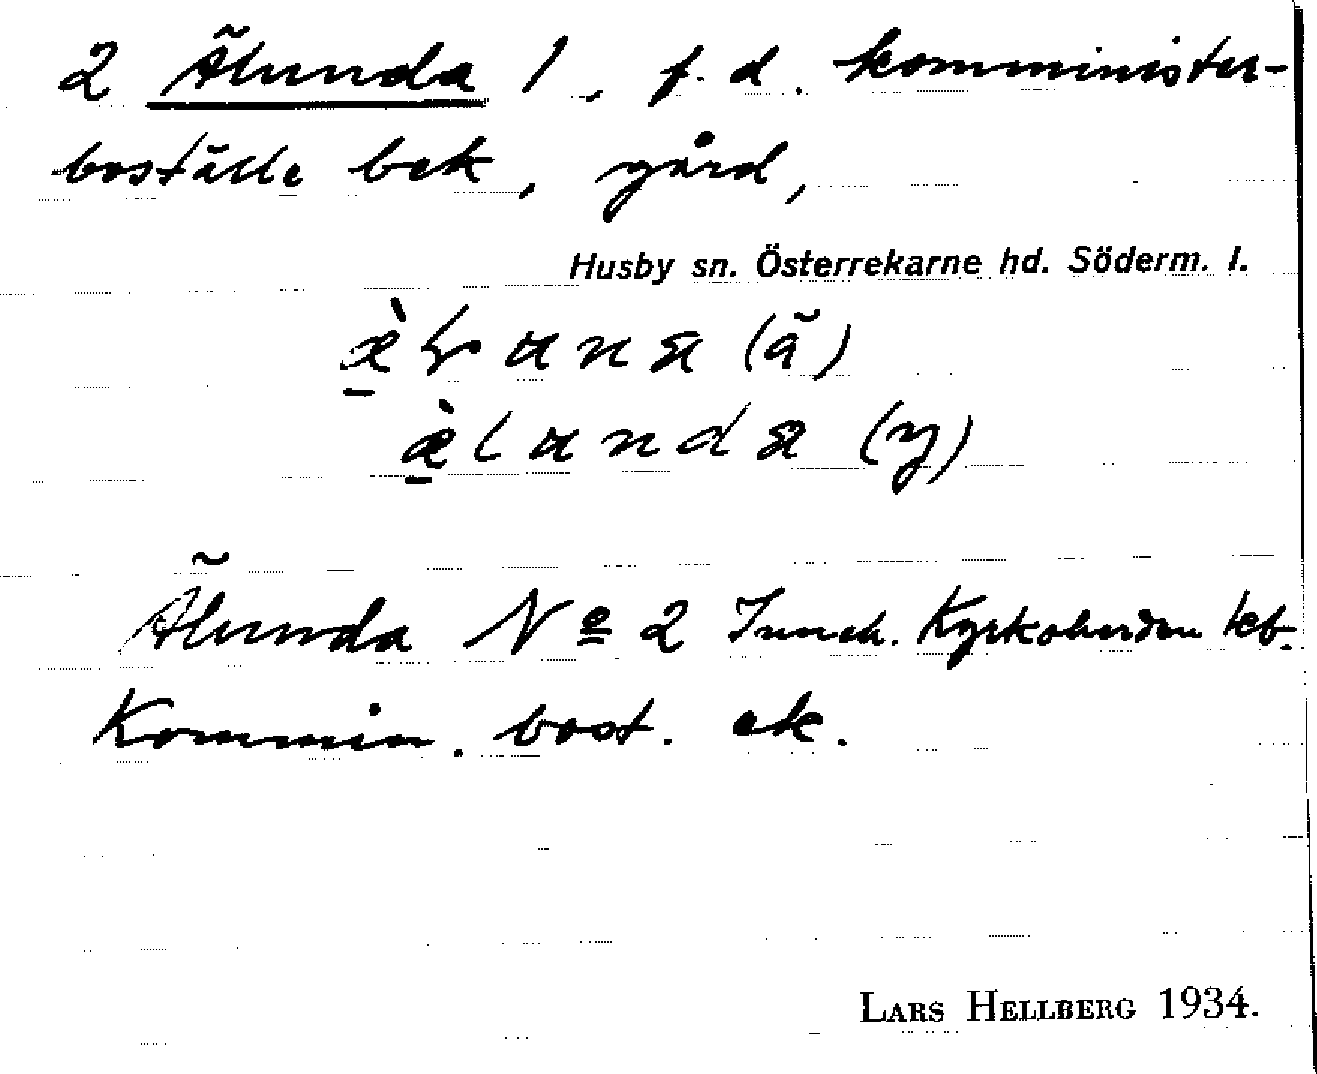 2 Älunda 1, f. d. komminister-
boställe bek, gård,
Husby sn. Österrekarne hd. Söderm. l.
(ä)
(y)
Älunda No 2 Inneh. Kyrkoherden
Kommin. bost. ek.
Lars Hellberg 1934.